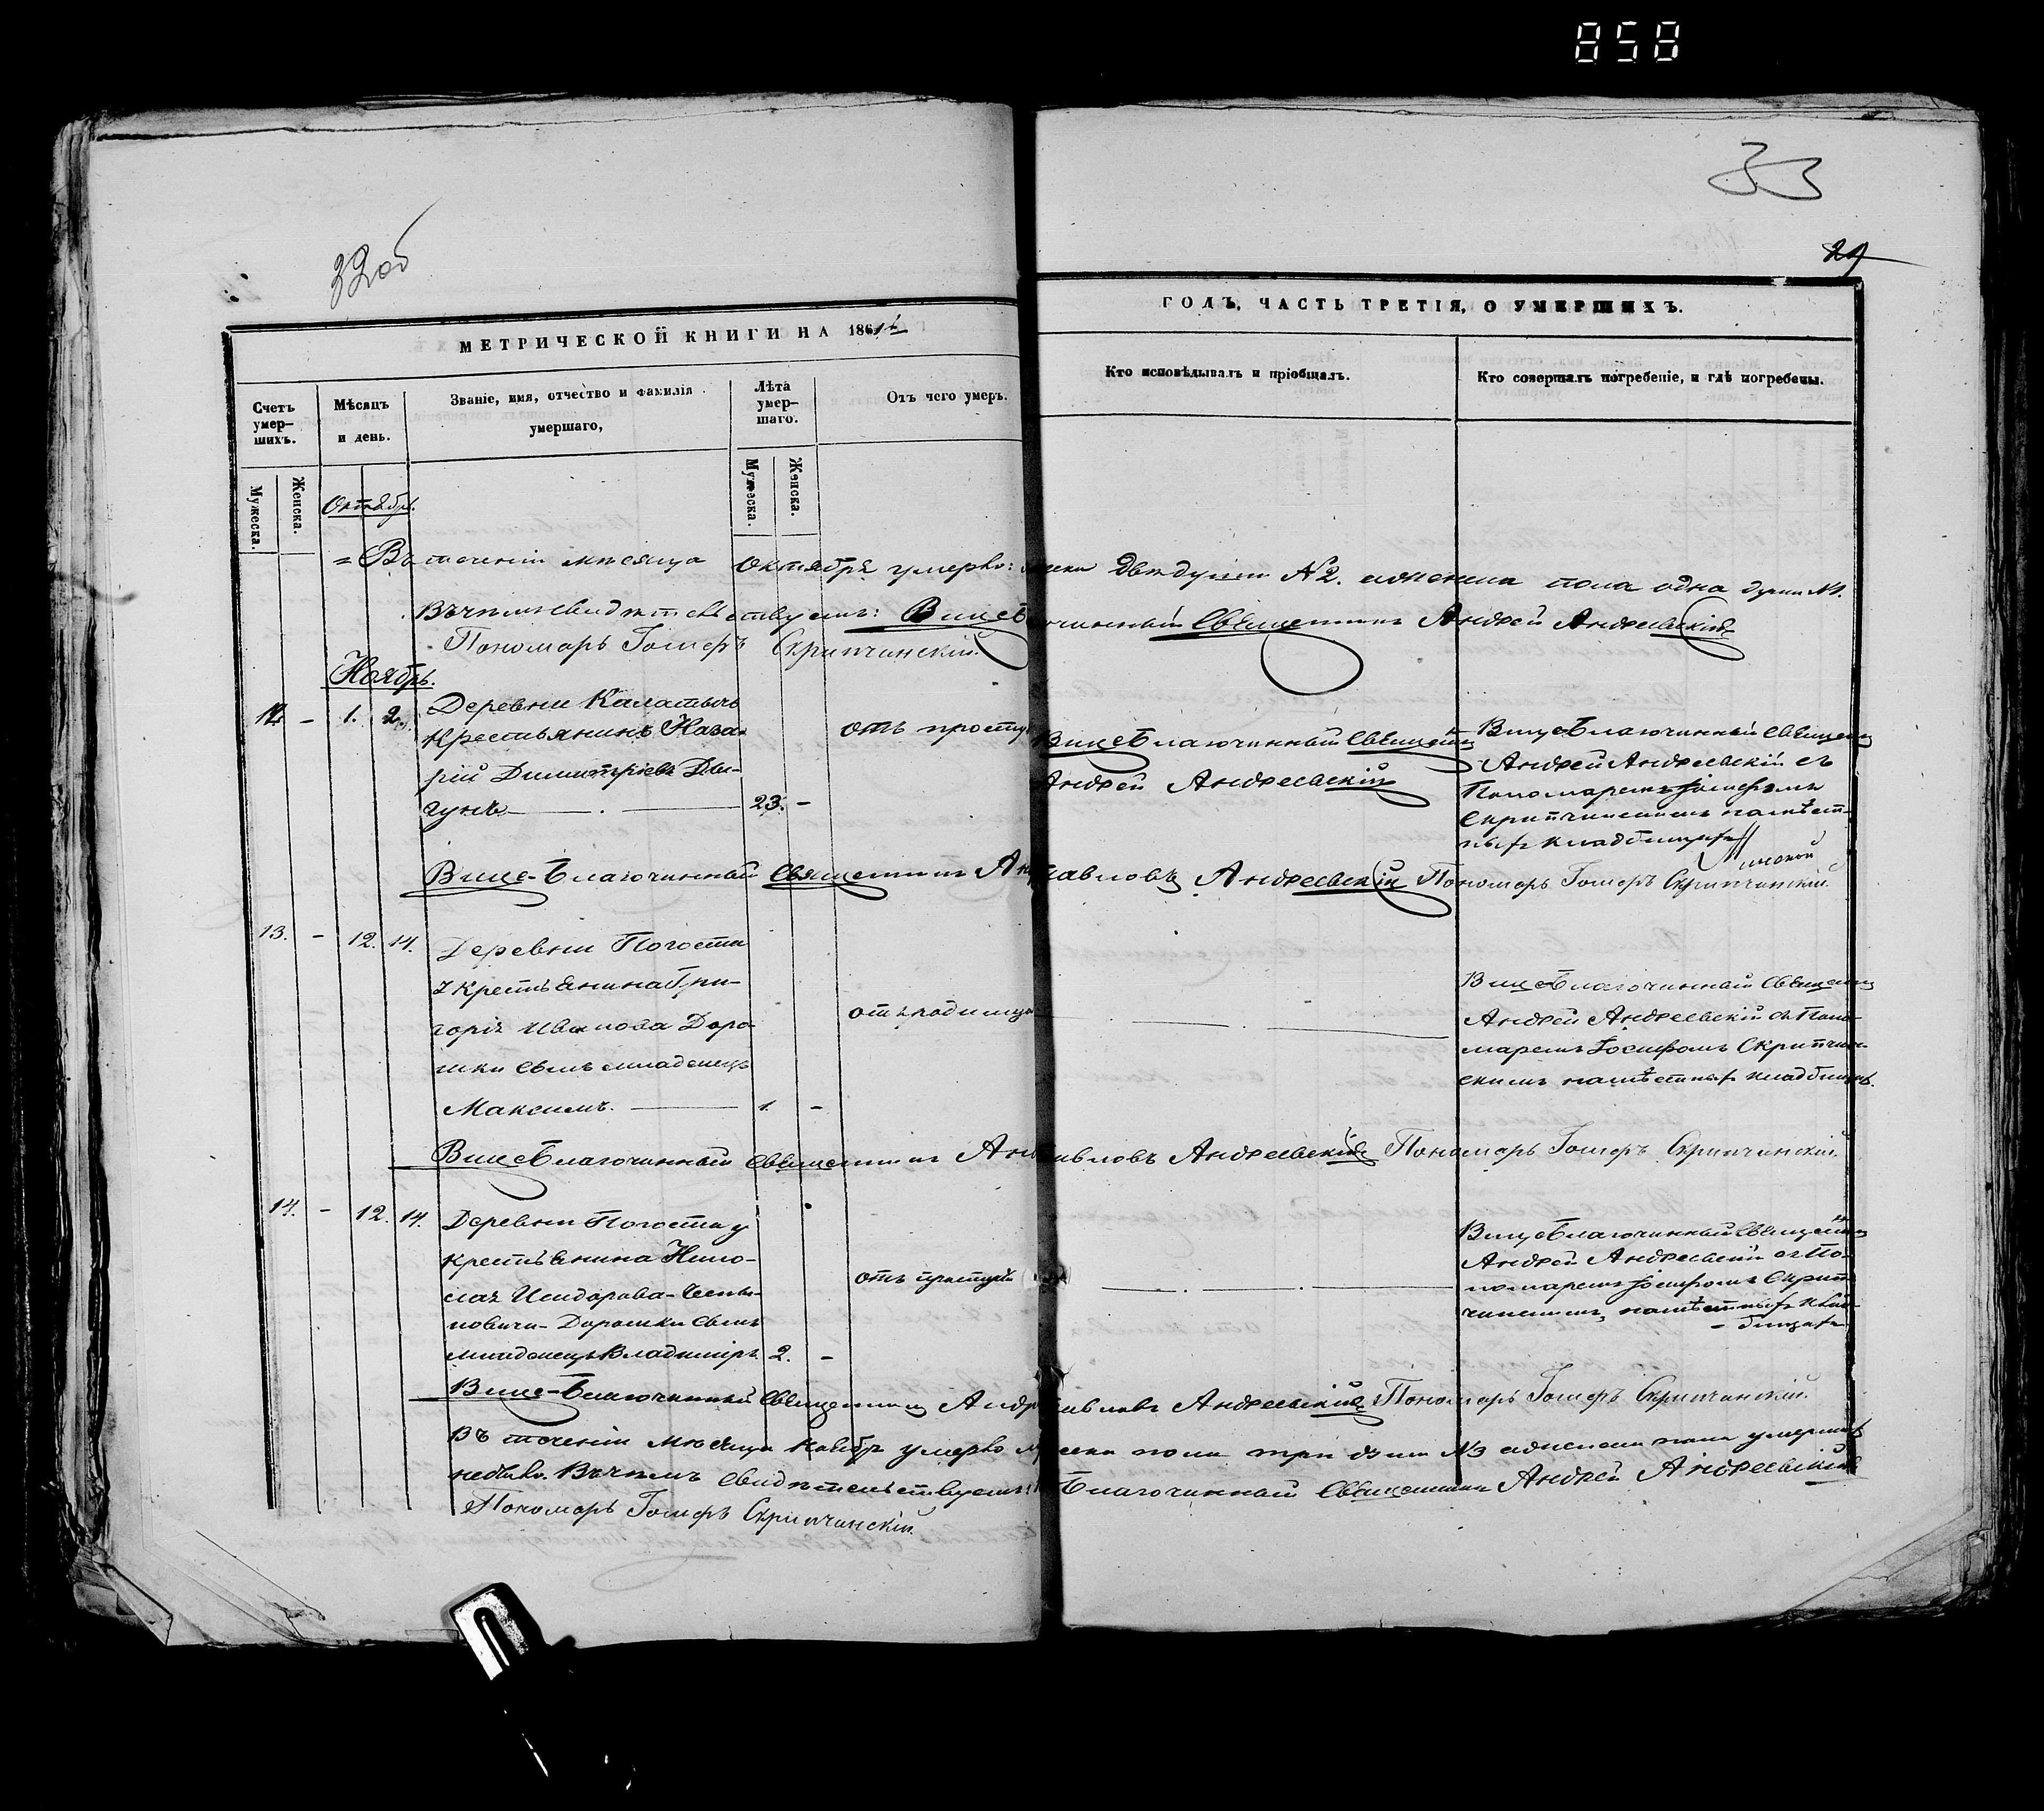 858
33
32об
29
МЕТРИЧЕСКОЙ КНИГИ НА 1861й
ГОДЪ, ЧАСТЬ ТРЕТІЯ, О УМЕРШИХЪ.
Счетъ умер-шихъ.
Мѣсяцъ и день.
Званіе, имя, отчество и фамилія умершаго,
Лѣта умер-шаго.
Отъ чего умеръ.
Кто исповѣдывалъ и пріобщалъ.
Кто совершалъ погребеніе, и гдѣ погребены.
Мужеска.
Женска.
Мужеска.
Женска.
Октябрь.
= Въ теченіи мѣсяца Октября умерло: двѣ души №2. а женска пола одна душа №1.
Въ чемъ свидѣтельствуемъ: Вице Священникъ Андрей Андреевскій
Пономарь Іосифъ Скрипчинскій.
Ноябрь.
12. - 1. 2.
Деревни
Крестьянинъ Наза-
рій Димитріевъ Ды-
гунъ 23. -
отъ просту
Вице Благочинный Священникъ
Андрей Андреевскій
Вице Благочинный Священникъ
Андрей Андреевскій съ
Пономаремъ Іосифомъ
Скрипчинскимъ на мѣст-
ныхъ кладбищахъ
Вице-Благочинный Священникъ Ан авловъ Андреевскій Пономарь Іосифъ Скрипчинскій.
13. - 12. 14.
Деревни Погоста
у Крестьянина Гри-
горія Иванова Доро-
шки сынъ младенецъ
Максимъ. 1. -
отъ родимца
Вице Благочинный Священникъ
Андрей Андреевскій съ Поно-
маремъ Іосифомъ Скрипчин-
скимъ на мѣстныхъ кладбищахъ.
Вице Благочинный Священникъ Ан авловъ Андреевскій Пономарь Іосифъ Скрипчинскій
14. - 12. 14.
Деревни Погоста у
крестьянина Нико-
лая Исидорова-
новича-Дорошки сынъ
младенецъ Владиміръ 2. -
отъ простуды
Вице Благочинный Священникъ
Андрей Андреевскій съ По-
номаремъ Іосифомъ Скрип-
чинскимъ, на мѣстныхъ клад-
бищахъ
Вице-Благочинный Священникъ Андр авловъ Андреевскій Пономарь Іосифъ Скрипчинскій.
Въ теченіи мѣсяца Ноября умерло м ска пола три души №3 а женска пола умершихъ
небыло. Въ чемъ свидѣтельствуемъ: Благочинный Священникъ Андрей Андреевскій
Пономарь Іосифъ Скрипчинскій.